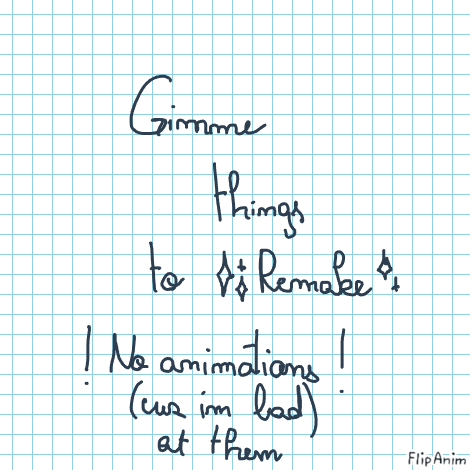 Gimme
things
to Remake
! No animations !
(cuz im bad)
at them
FlipAnim